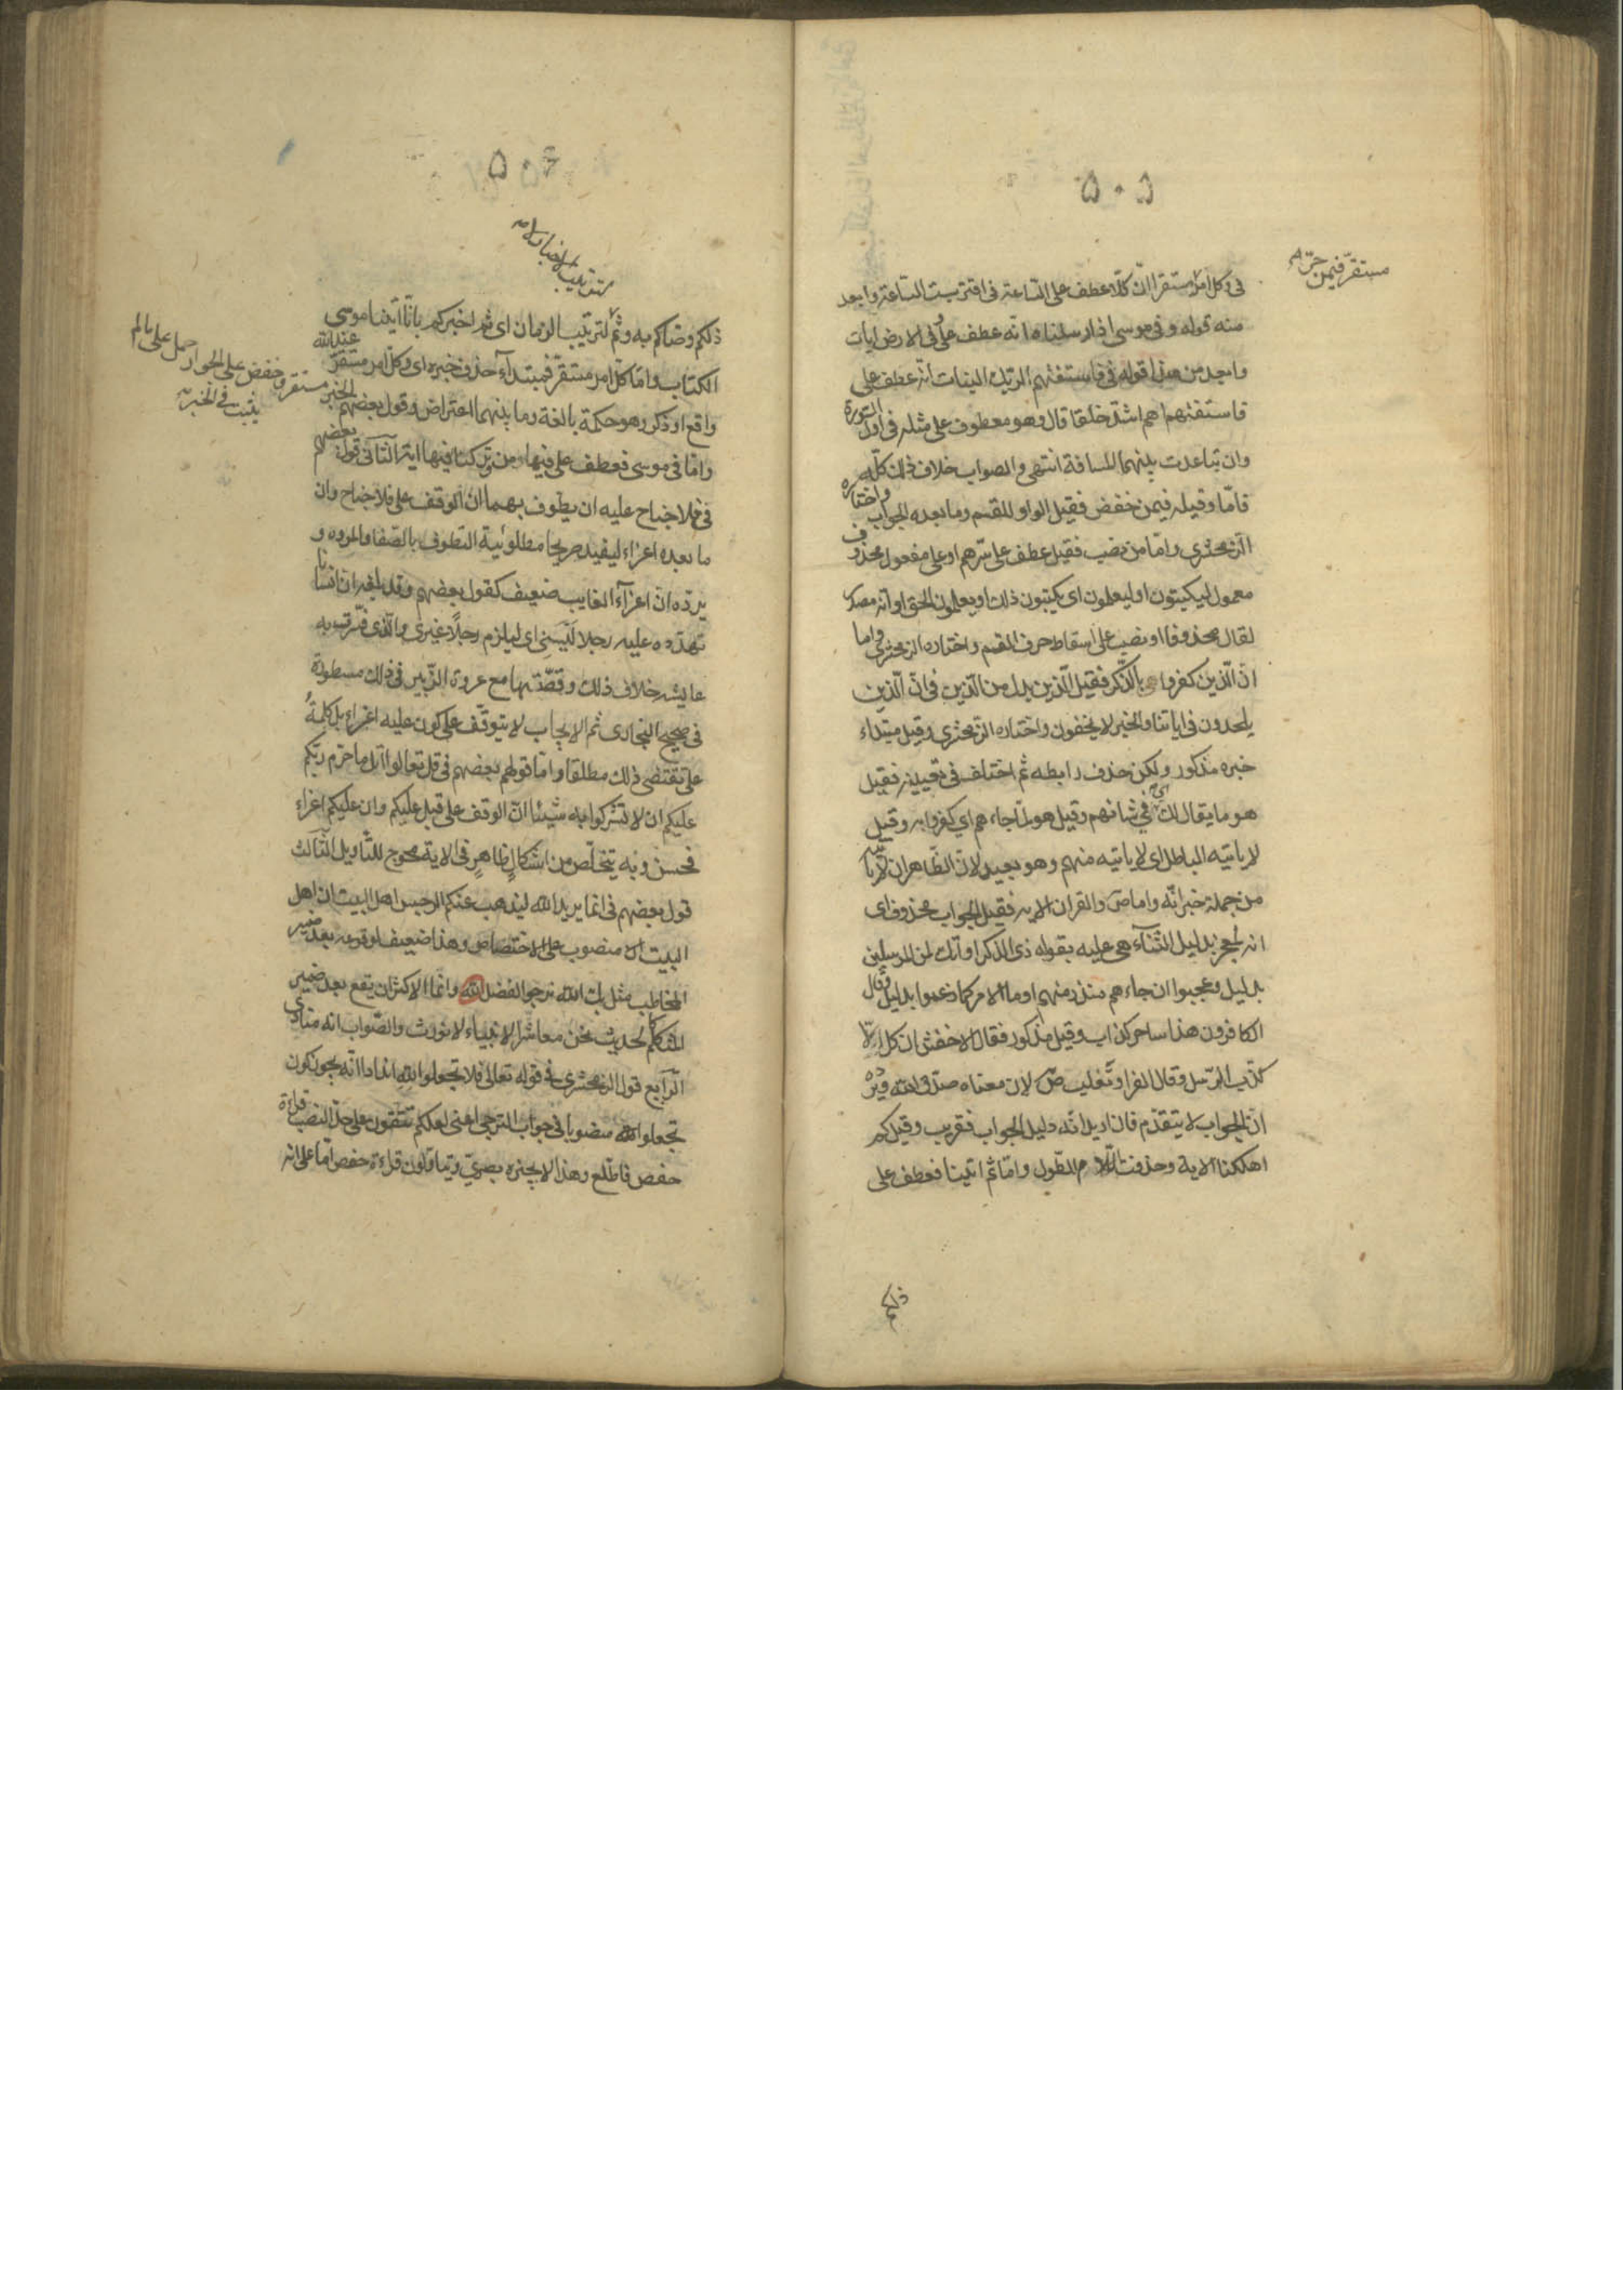 ٥٠٥
مستقر فيمن جره
فى وكل امر مستقر ان كلا عطف على الساعة فى اقتربت الساعة وابعد
منه قوله وفى موسى اذ ارسلناه انه عطف على وفى الارض ايات
وابعد من هذا قوله فى فاستفتهم الربك البنات انه عطف على
فاستفتهم اهم اشد خلقا قال وهو معطوف على مثله فى اول السورة
وان تباعدت بينهما المسافة انتهى والصواب خلاف ذلك كله
فاما وقيله فيمن خفض فقيل الواو للقسم وما بعده الجواب واختاره
الزمخشرى واما من نصب فقيل عطف على سرهم او على مفعول محذوف
معمول ليكتبون او ليعلمون اى يكتبون ذلك او يعلمون الحق او انه مصدر
لقال محذوفا او نصب على اسقاط حرف القسم واختاره الزمخشرى واما
ان الذين كفروا بالذكر فقيل الذين بدل من الذين فى ان الذين
يلحدون فى اياتنا والخبر لا يخفون واختاره الزمخشرى وقيل مبتداء
خبره مذكور ولكن حذف رابطه ثم اختلف فى تعيينه فقيل
هو ما يقال لك اى فى شانهم وقيل هو لما جاءهم اى كفروا به وقيل
لا ياتيه الباطل اى لا ياتيه منهم وهو بعيد لان الظاهر ان لا ياتيه
من جملة خبر انه واما ص والقران الاية فقيل الجواب محذوف اى
انه لمعجز بدليل الثناء عليه بقوله ذى الذكر او انك لمن المرسلين
بدليل وعجبوا ان جاءهم منذر منهم او ما الامر كما زعموا بدليل وقال
الكافرون هذا ساحر كذاب وقيل مذكور فقال الاخفش ان كل الا
كذب الرسل وقال الفراء وثعلب ص لان معناه صدق الله ويرده
ان الجواب لا يتقدم فان اريد انه دليل الجواب فقريب وقيل كم
اهلكنا الاية وحذفت اللام للطول واما ثم اتينا فعطف على
ذلكم
٥٠٦
لترتيب الاخبار لا
ذلكم وصاكم به وثم لترتيب الزمان اى ثم اخبركم بانا اتينا موسى
الكتاب واما كل امر مستقر فمبتداء حذف خبره اى وكل امر مستقر عند الله
واقع او ذكر وهو حكمة بالغة وما بينهما اعتراض وقول بعضهم الخبر
مستقر وخفض على الجوار حمل على ما لم
يثبت فى الخبر
واما فى موسى فعطف على فيها من وتركنا فيها اية الثانى قول بعضهم
فى فلا جناح عليه ان يطوف بهما ان الوقف على فلا جناح وان
ما بعده اغراء ليفيد صريحا مطلوبية التطوف بالصفا والمروه و
يرده ان اغراء الغايب ضعيف كقول بعضهم وقد بلغه ان انسانا
تهدده عليه رجلا ليسنى اى ليلزم رجلا غيرى والذى فسرت به
عايشه خلاف ذلك وقصتها مع عروة الزبير فى ذلك مسطورة
فى صحيح البخارى ثم الايجاب لا يتوقف على كون عليه اغراء بل كلمة
على تقتضى ذلك مطلقا واما قولهم بعضهم فى قل تعالوا اتل ما حرم ربكم
عليكم ان لا تشركوا به شيئا ان الوقف على قبل عليكم وان عليكم اغراء
فحسن وبه يتخلص من اشكال ظاهر فى الاية محوج للتاويل الثالث
قول بعضهم فى انما يريد الله ليذهب عنكم الرجس اهل البيت ان اهل
البيت منصوب على الاختصاص وهذا ضعيف لوقوعه بعد ضمير
المخاطب مثل بك الله نرجو الفضل وانما الاكثر ان يقع بعد ضمير
المتكلم كالحديث نحن معاشر الانبياء لا نورث والصواب انه منادى
الرابع قول الزمخشرى فى قوله تعالى فلا تجعلوا لله اندادا انه يجوز كون
تجعلوا منصوبا فى جواب الترجى اعنى لعلكم تتقون على حد النصب قراءة
حفص فاطلع وهذا لا يجيزه بصرى ويتاولون قراءة حفص اما على انه